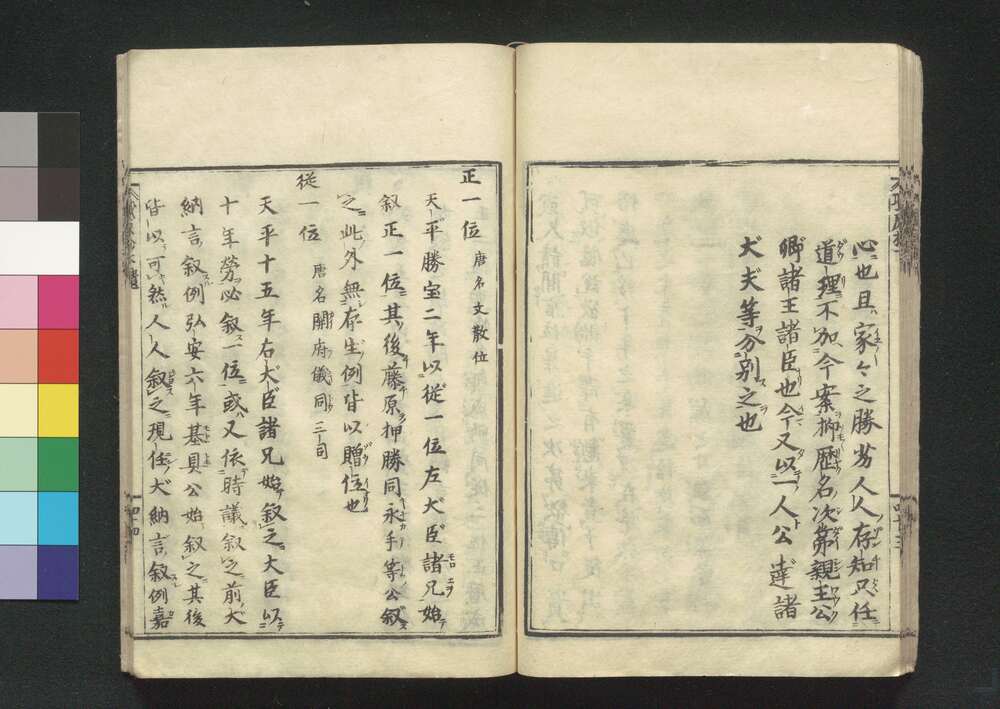 心也且家々之勝劣人人存知只任
道理不加今案抑歴名次第親王公
卿諸王諸臣也今又以一人公達諸
大夫等分別之也
正一位 唐名文散位
天平勝宝二年以従一位左大臣諸兄始
叙正一位其後藤原押勝同永手等公叙
之此外無存生例皆以贈位也
従一位 唐名開府儀同三司
天平十五年右大臣諸兄始叙之大臣以
十年労必叙一位或又依時議叙之前大
納言叙例弘安六年基具公始叙之其後
皆以可然人人叙之現任大納言叙例嘉
四十四